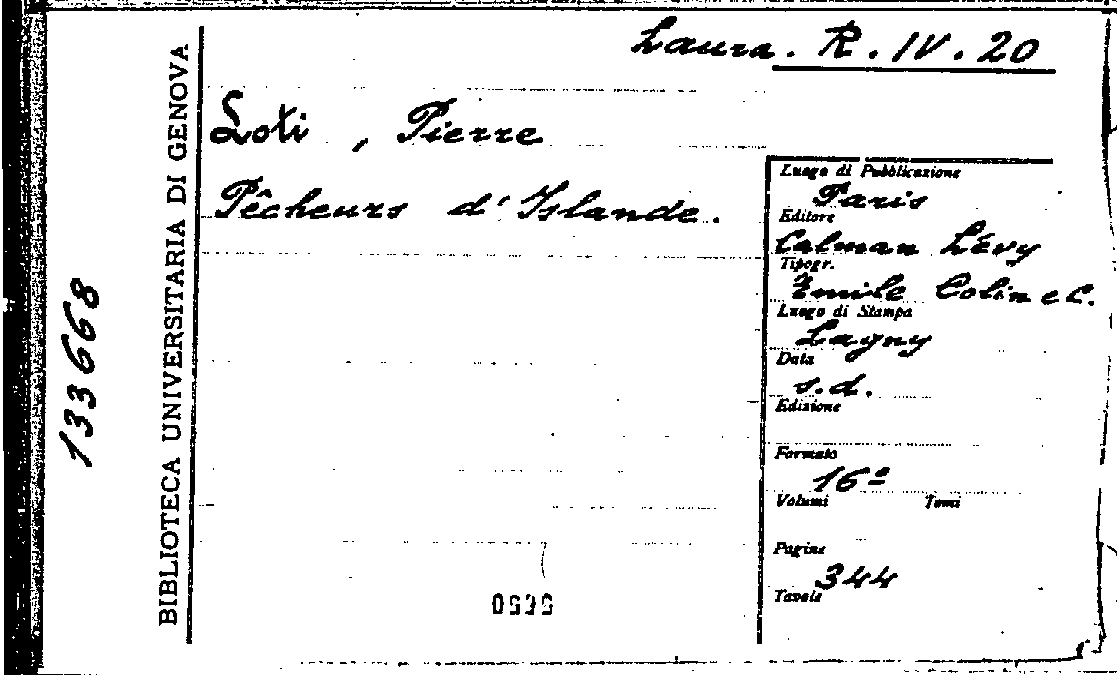 Laura. R. IV. 20
Loti, Pierre
Pêcheurs d'Islande.
Luogo di Pubblicazione
Paris
Editore
Calman Lévy
Tipogr.
Emile Colin e C.
Luogo di Stampa
Lagny
Data
s.d.
Edizione
Formato
16º
Volumi Tomi
Pagine
344
Tavole
BIBLIOTECA UNIVERSITARIA DI GENOVA
13668